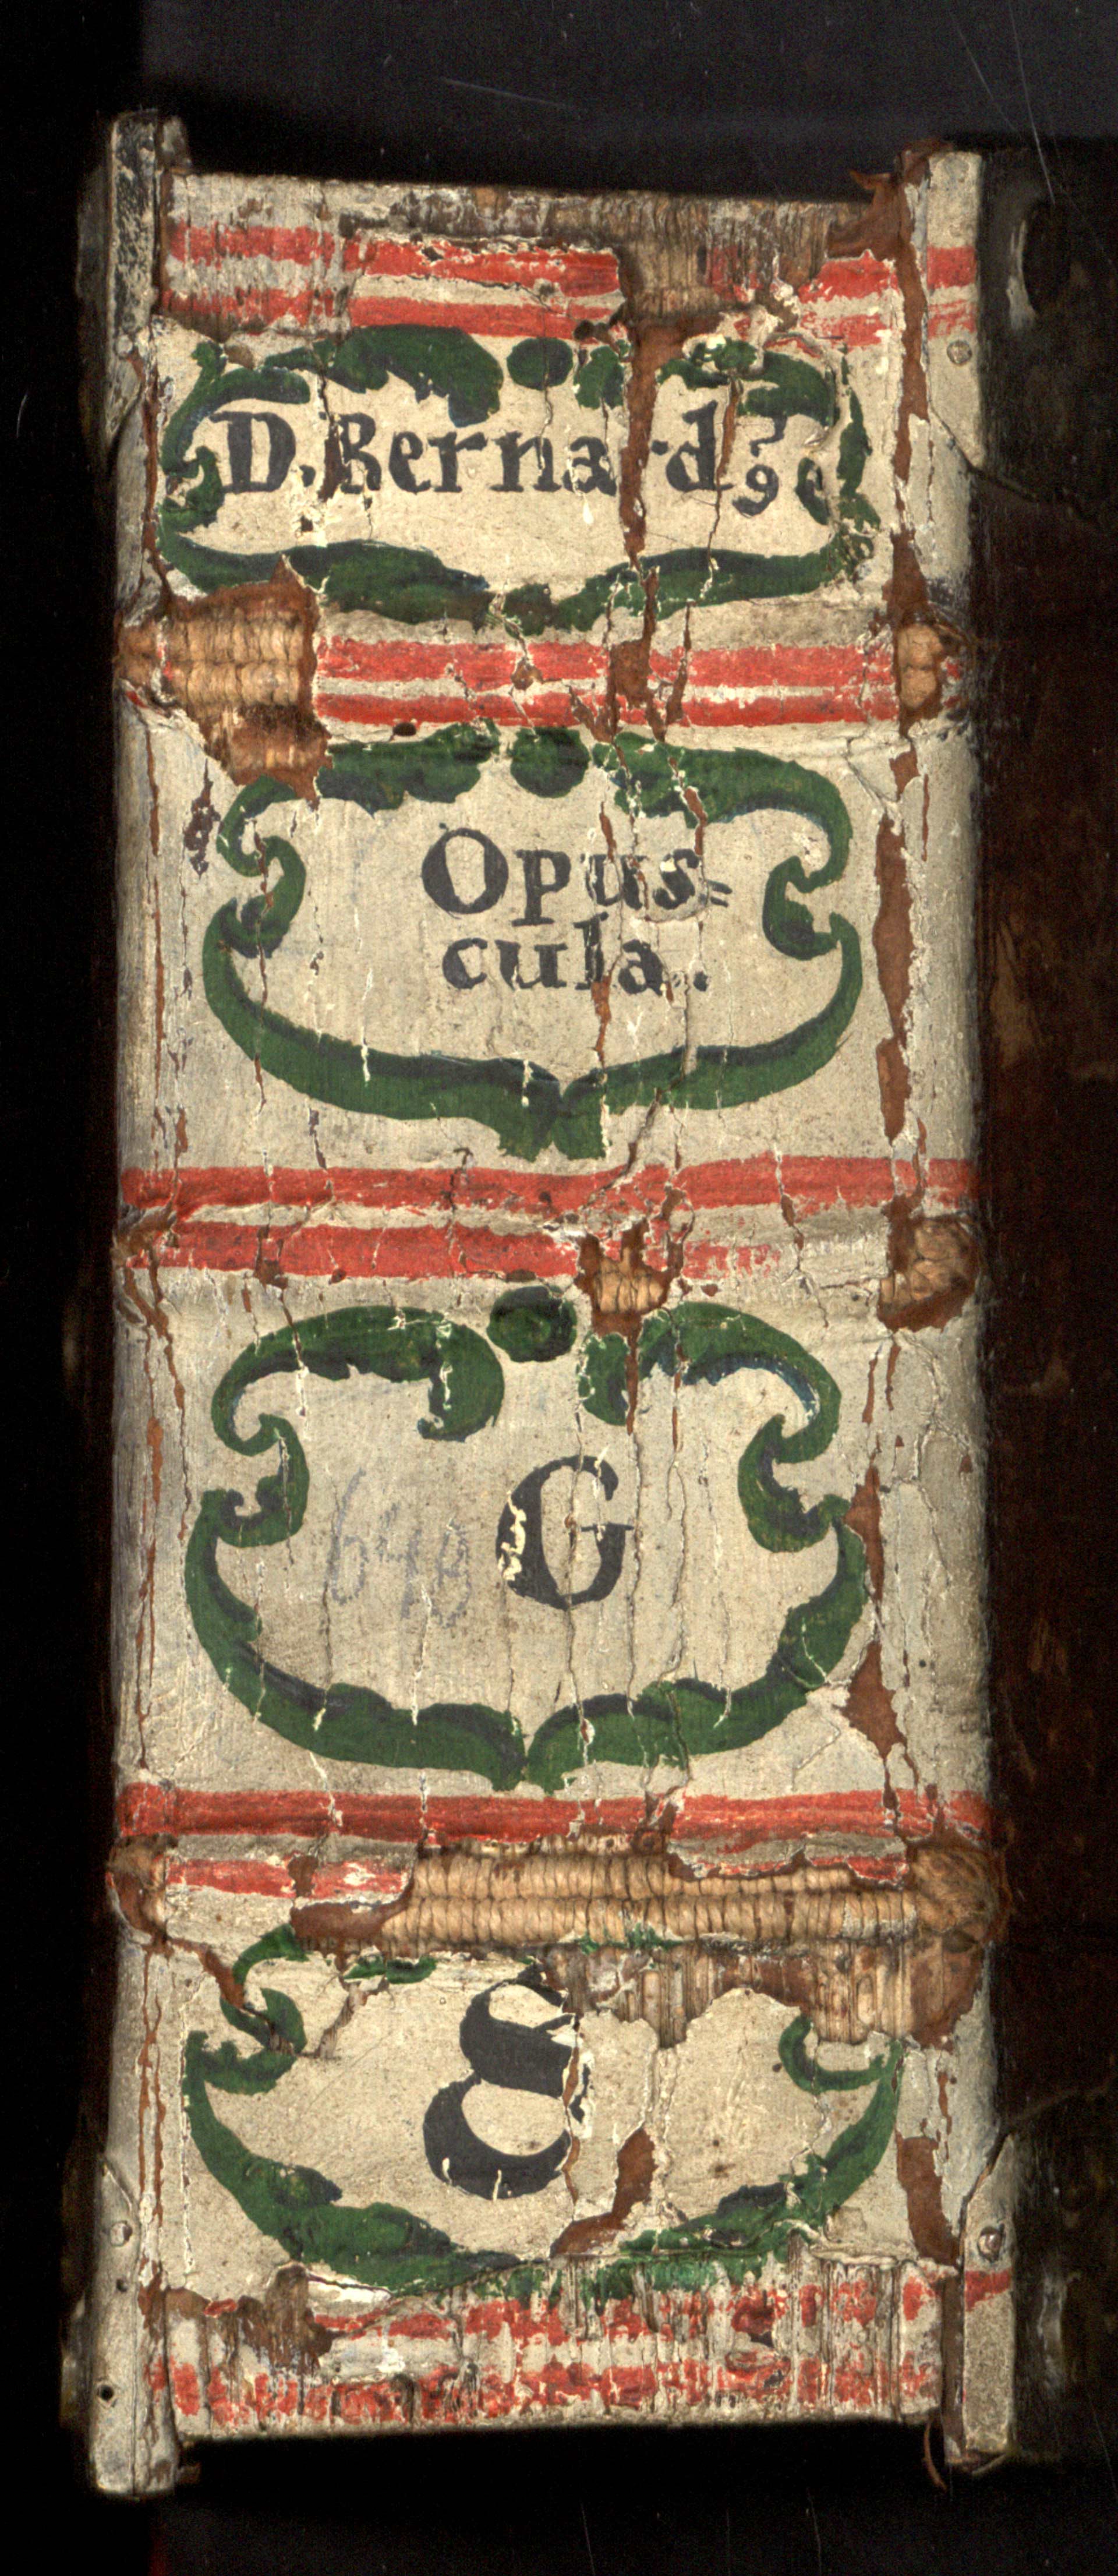 D. Bernard9
Opus=
cula.
G
8